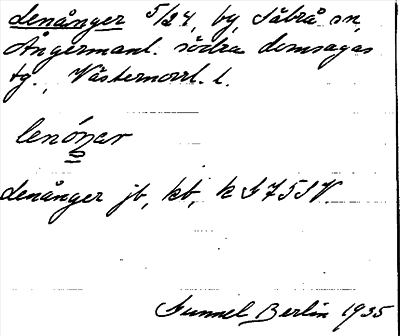 Lenånger 5/24, by, Säbrå sn,
Ångermanl. södra domsagas
tg., Västernorrl. l.
lenóŋar
Lenånger jb, kb, k G 7 5 S V.
Gunnel Berlin 1935